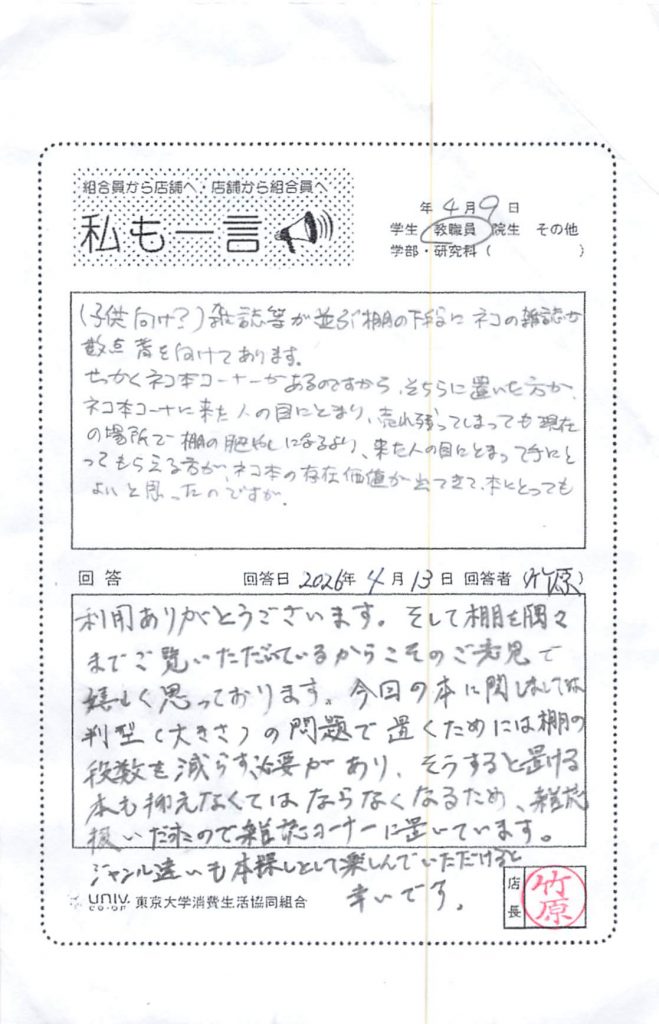 組合員から店舗へ・店舗から組合員へ
私も一言
年 4月 9日
学生 教職員 院生 その他
学部・研究科 ( )
(子供向け?)雑誌等が並ぶ棚の下段に ネコの雑誌が
数点 背を向けてあります。
せっかくネコ本コーナーがあるのですから、そちらに置いた方が、
ネコ本コーナに来た人の目にとまり、売れ残ってしまっても現在
の場所で棚の肥やしになるより、来た人の目にとまって手にと
ってもらえる方が、ネコ本の存在価値が出てきて、本にとっても
よいと思ったのですが。
回答 回答日 2026年 4月 13日 回答者 (竹原)
利用ありがとうございます。そして棚を隅々
までご覧いただいているからこそのご意見で
嬉しく思っております。今回の本に関しましては
判型(大きさ)の問題で置くためには棚の
段数を減らす必要があり、そうすると置ける
本も抑えなくてはならなくなるため、雑誌
扱いだったので雑誌コーナーに置いています。
ジャンル違いも本探しとして楽しんでいただけると
幸いです。
univ.
CO-OP 東京大学消費生活協同組合
店長 竹原